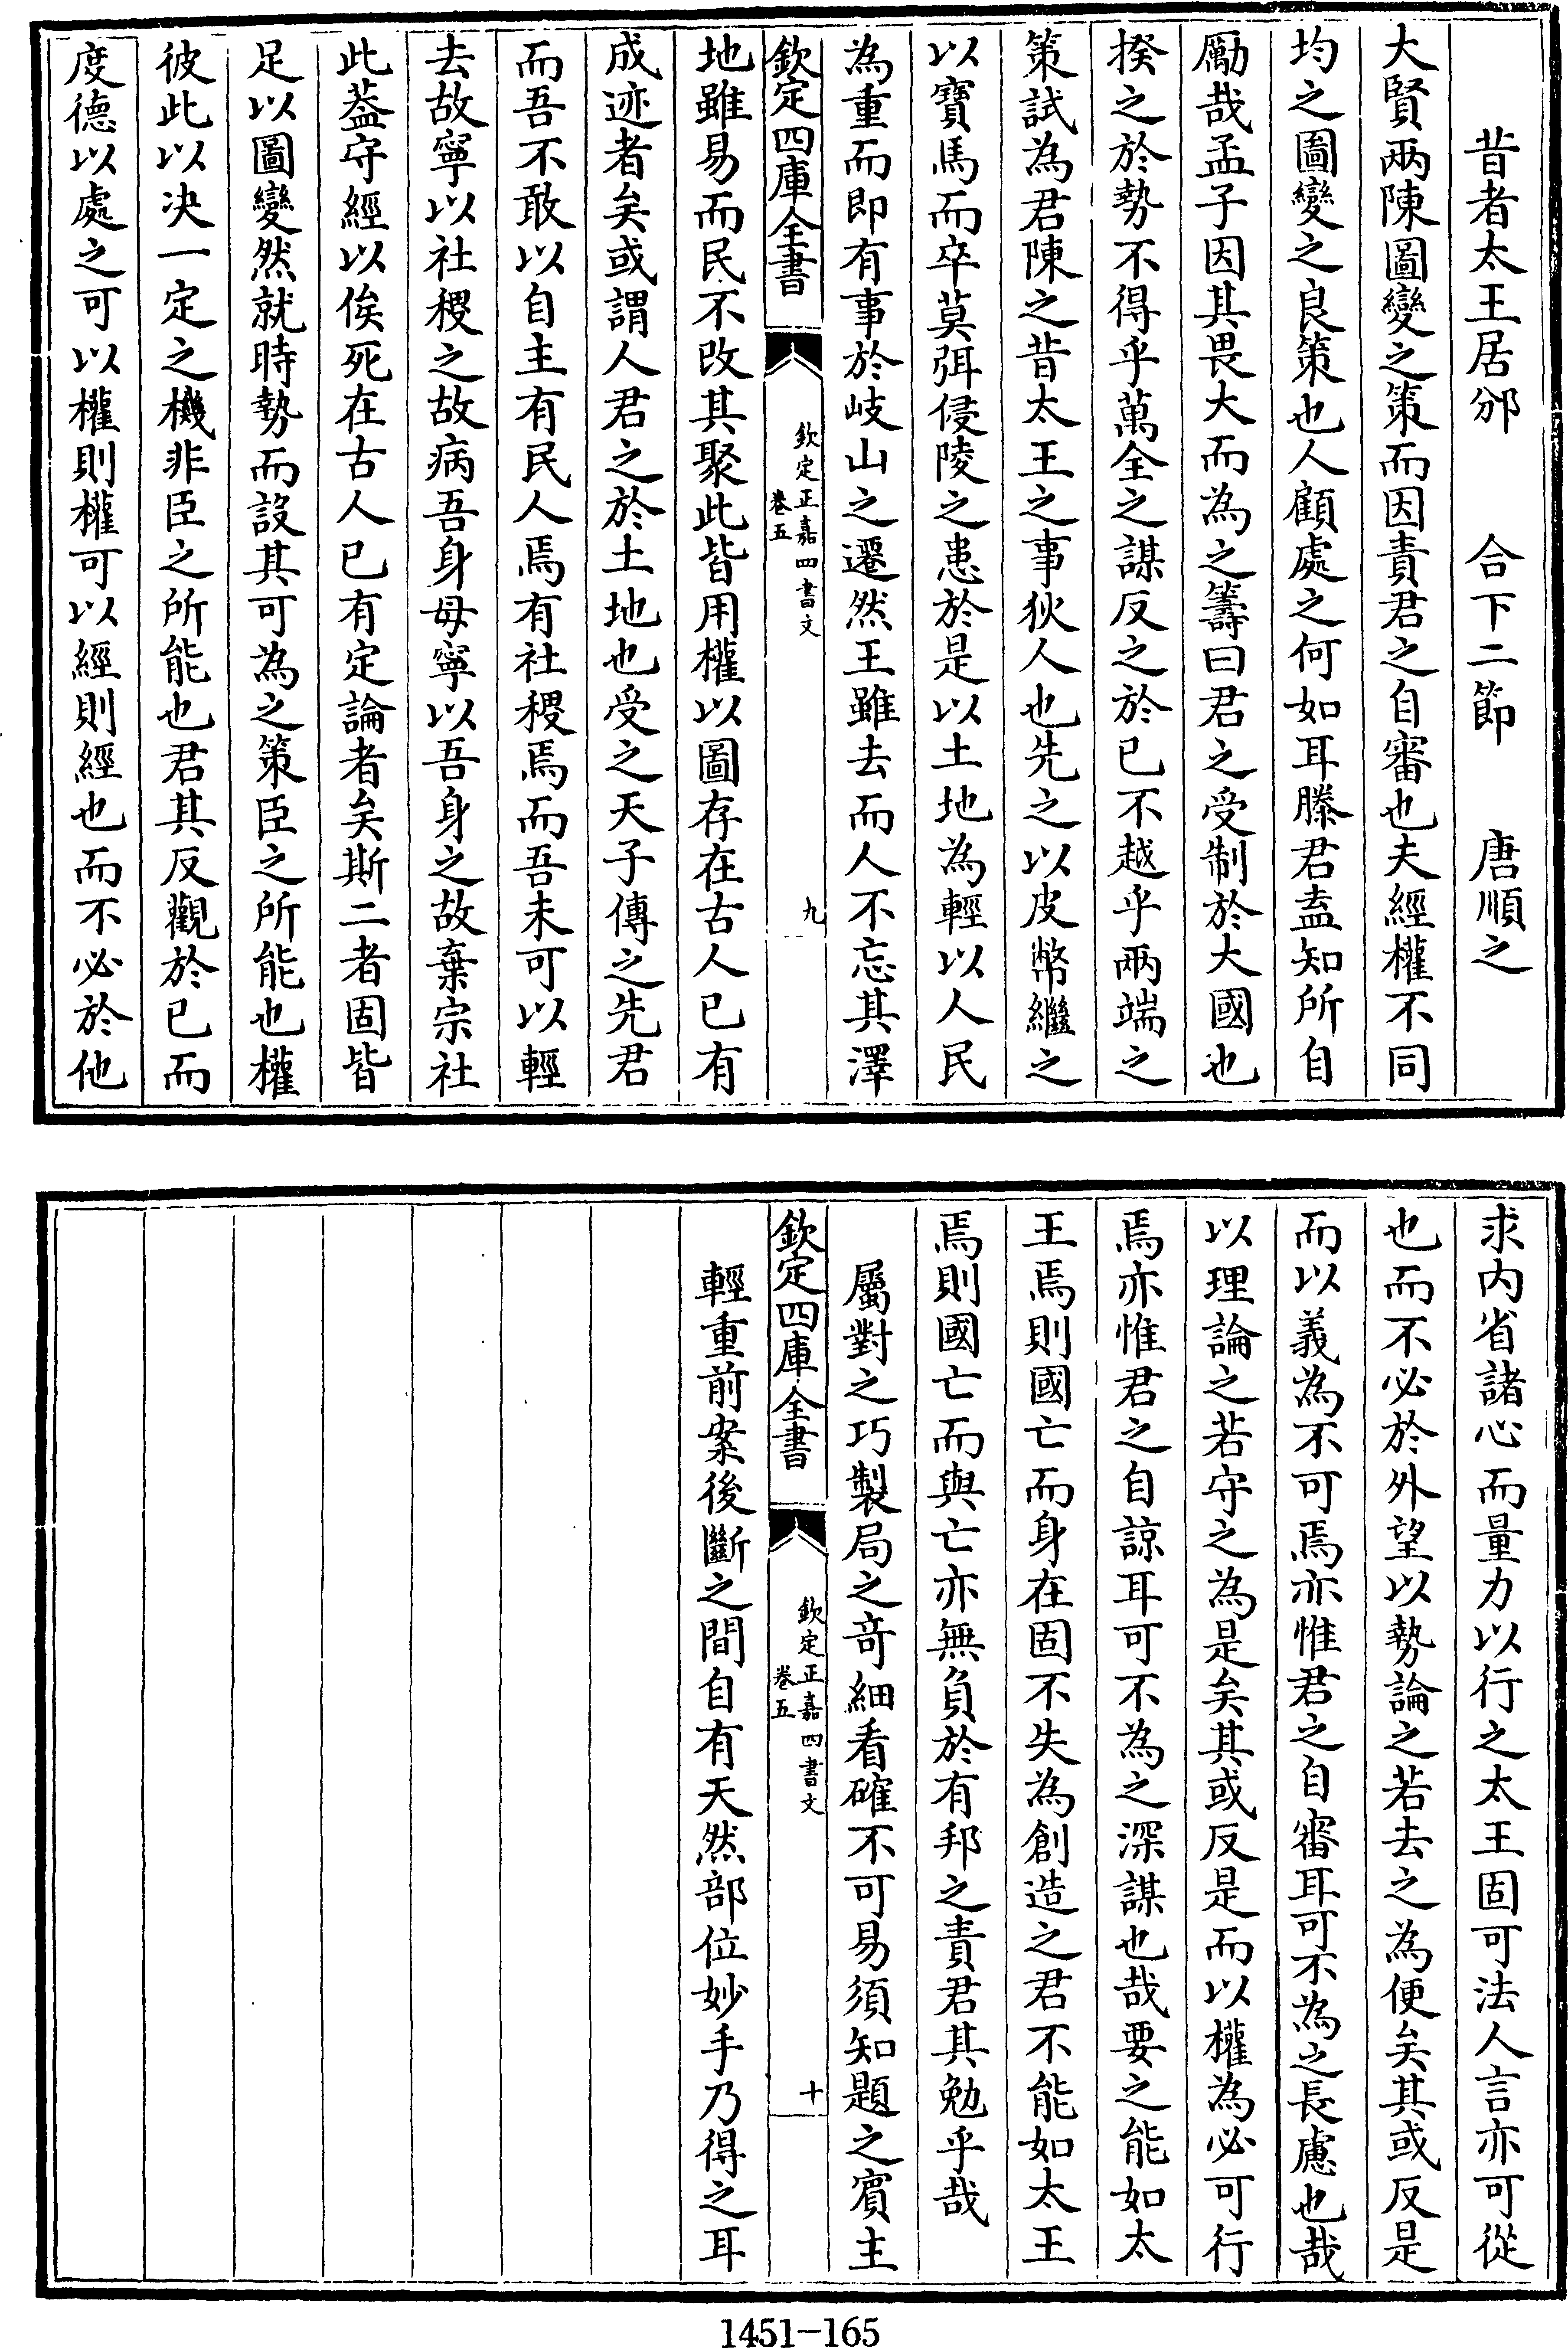 昔者太王居邠　合下二節　唐順之
大賢兩陳圖變之策而因責君之自審也夫經權不同
均之圖變之良策也人顧處之何如耳滕君盍知所自
勵哉孟子因其畏大而為之籌曰君之受制於大國也
揆之於勢不得乎萬全之謀反之於已不越乎兩端之
策試為君陳之昔太王之事狄人也先之以皮幣繼之
以寶馬而卒莫弭侵陵之患於是以土地為輕以人民
為重而即有事於岐山之遷然王雖去而人不忘其澤
欽定四庫全書
欽定正嘉四書文
卷五
九
地雖易而民不改其聚此皆用權以圖存在古人已有
成迹者矣或謂人君之於土地也受之天子傳之先君
而吾不敢以自主有民人焉有社稷焉而吾未可以輕
去故寧以社稷之故病吾身毋寧以吾身之故棄宗社
此葢守經以俟死在古人已有定論者矣斯二者固皆
足以圖變然就時勢而設其可為之策臣之所能也權
彼此以决一定之機非臣之所能也君其反觀於已而
度德以處之可以權則權可以經則經也而不必於他
求内省諸心而量力以行之太王固可法人言亦可從
也而不必於外望以勢論之若去之為便矣其或反是
而以義為不可焉亦惟君之自審耳可不為之長慮也哉
以理論之若守之為是矣其或反是而以權為必可行
焉亦惟君之自諒耳可不為之深謀也哉要之能如太
王焉則國亡而身在固不失為創造之君不能如太王
焉則國亡而與亡亦無負於有邦之責君其勉乎哉
屬對之巧製局之竒細看確不可易須知題之賓主
欽定四庫全書
欽定正嘉四書文
卷五
十
輕重前案後斷之間自有天然部位妙手乃得之耳
1451-165